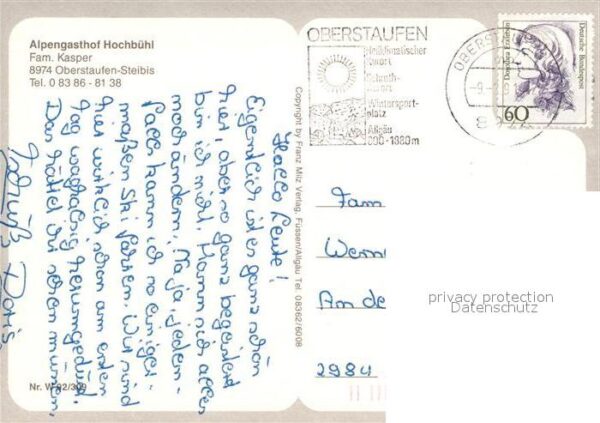 Alpengasthof Hochbühl
Fam. Kasper
8974 Oberstaufen-Steibis
Tel. 0 83 86 - 81 38
Hallo Leute!
Eigentlich ist es ganz schön
hier, aber so ganz begeistert
bin ich nicht. Kann sich alles
noch ändern. Na ja, jeden-
falls kann ich so einiger-
maßen Ski fahren. Wir sind
hier wirklich schon am ersten
Tag waghalsig herumgedüst.
Das hättet ihr sehen müssen.
Tschüß Doris
Nr. W
Copyright by Franz Milz Verlag, Füssen/Allgäu Tel. 08362/6008
OBERSTAUFEN
Heilklimatischer
Kurort
Schroth-
kurort
Wintersport-
platz
Allgäu
800-1880m
OBERST
Deutsche Bundespost
60
Fam
Wern
An de
2984
privacy protection
Datenschutz